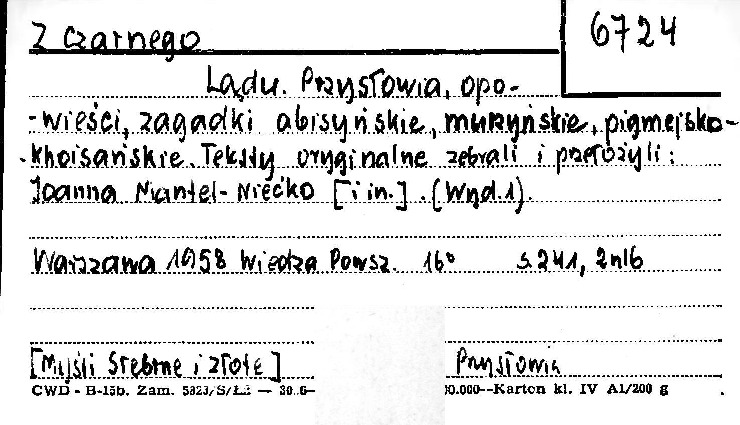 Z Czarnego
6724
Lądu. Przysłowia, opo-
-wieści, zagadki abisyńskie, murzyńskie, pigmejsko-
-khoisańskie. Teksty oryginalne zebrali i przełożyli:
Joanna Mantel-Niećko [i in.]. (Wyd.1).
Warszawa 1958 Wiedza Powsz. 16° s.241, 2nlb
[Myśli Srebrne i złote] Przysłowia
CWD - B-15b. Zam. 5823/S/Łż — 30.6— 00.000--Karton kl. IV A1/200 g